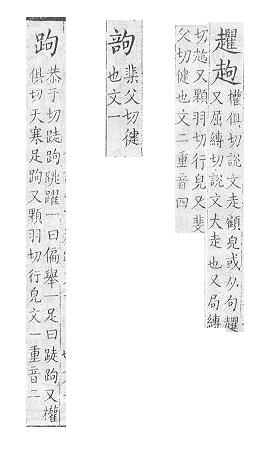 權俱切說文走顧皃或从句
又屈縛切說文大走也又局縛
切又顆羽切行皃又斐
父切健也文二重音四
父切健
也文一
跔
恭于切跿跔跳躍一曰偏舉一足曰跿跔又權
俱切天寒足跔又顆羽切行皃文一重音二